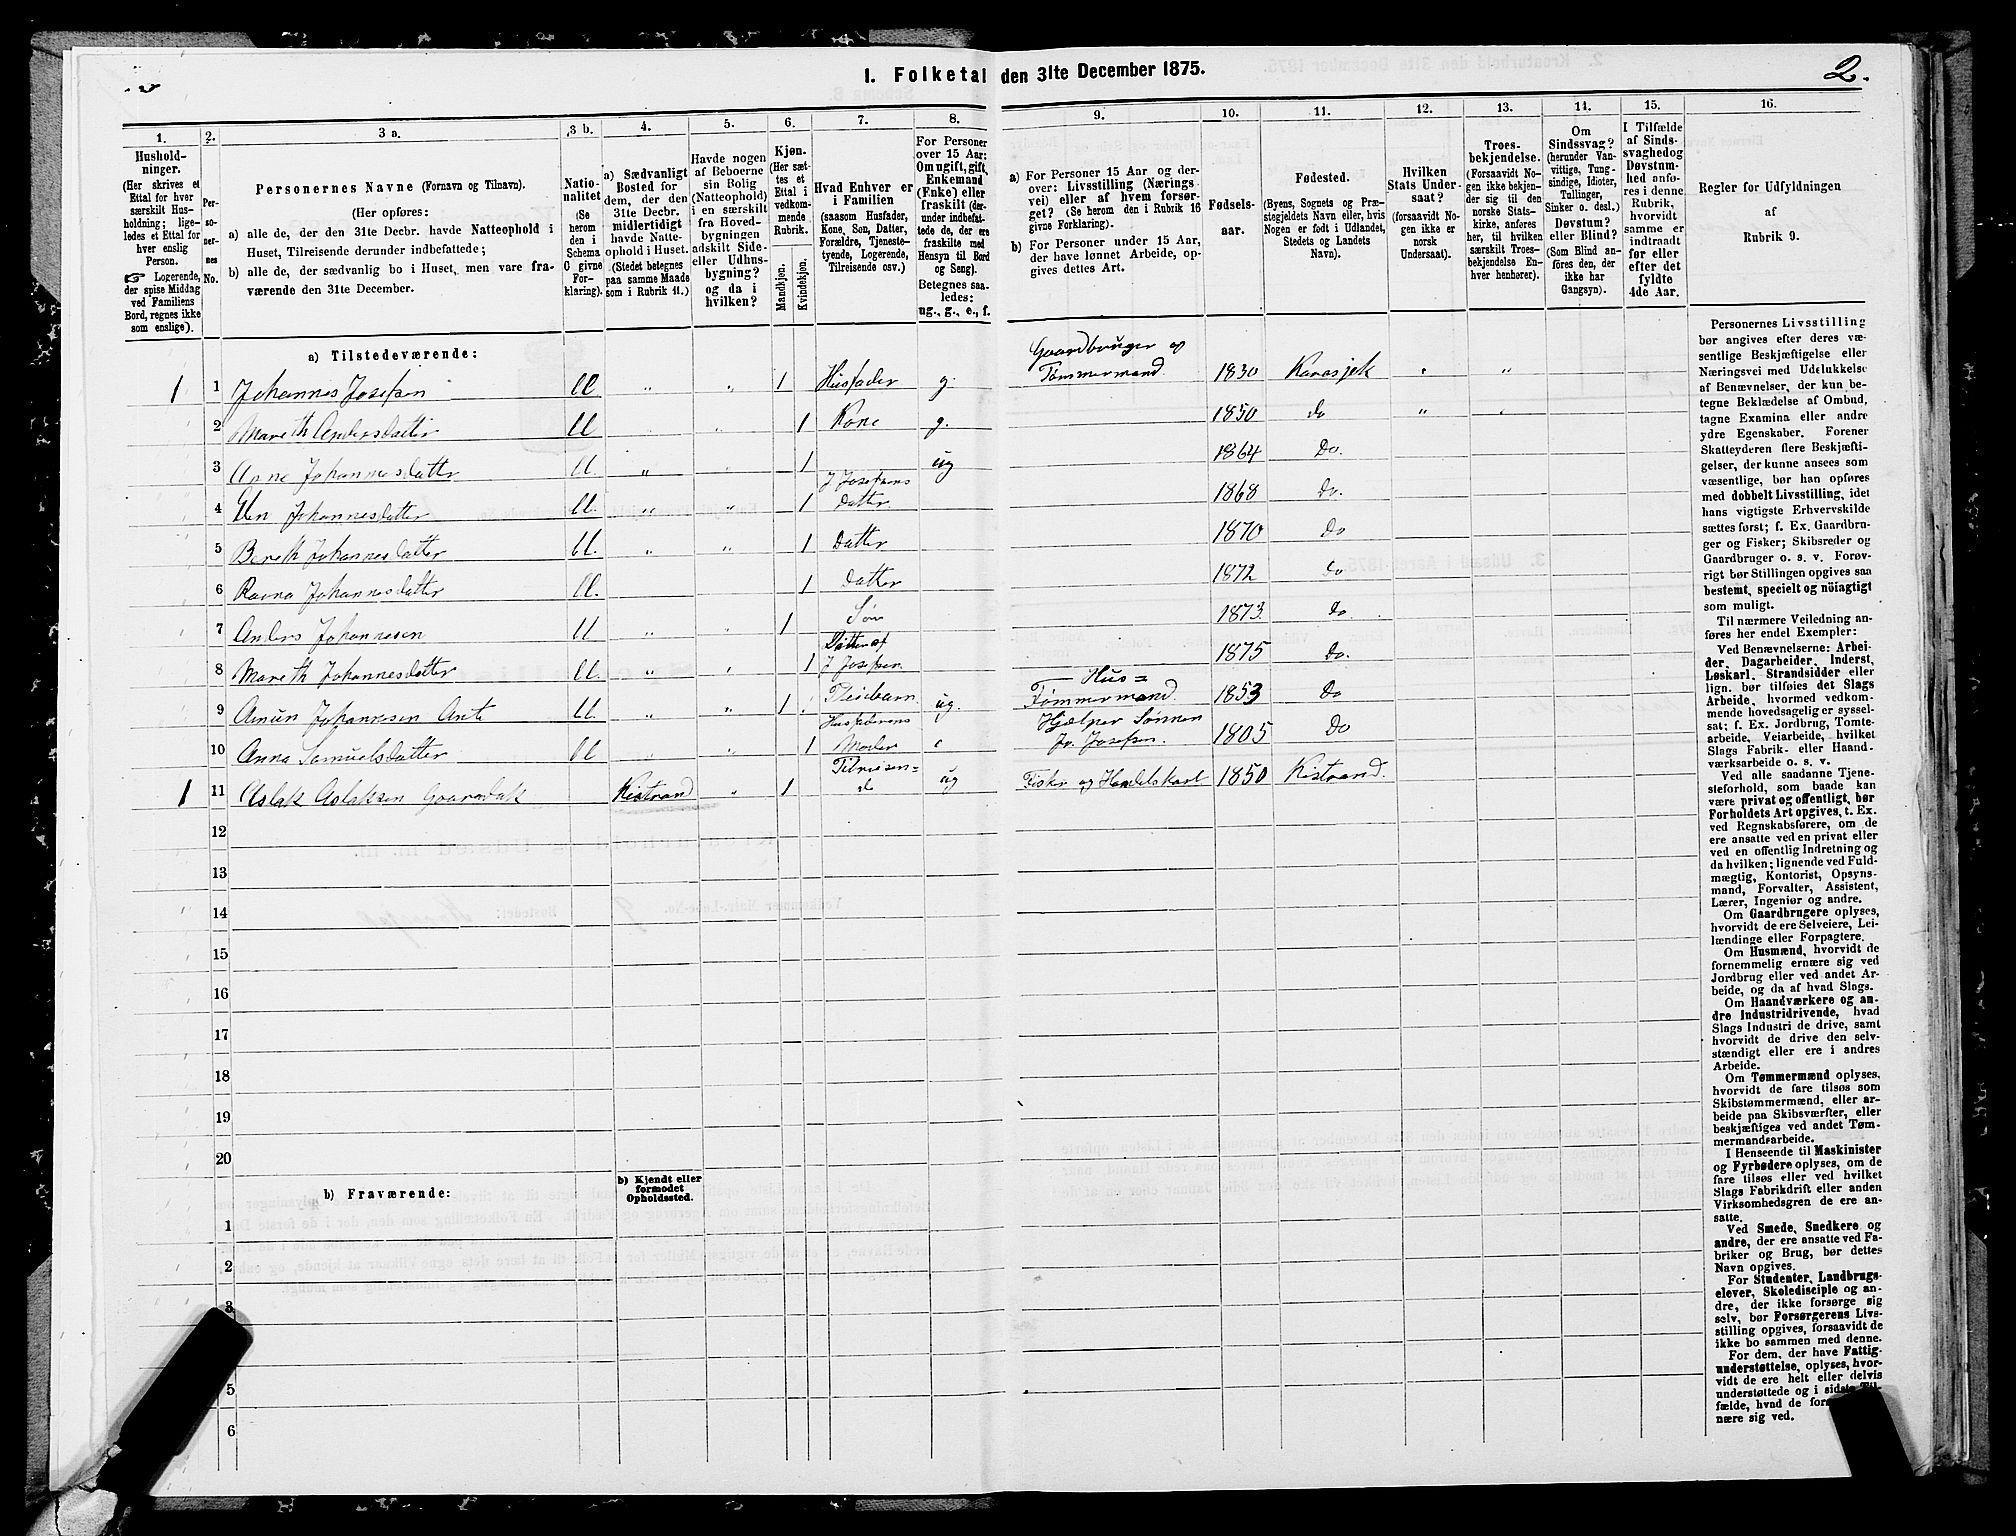 I. Folketal den 31te December 1875.
2.
1.
Hushold-
ninger.
(Her skrives et
Ettal for hver
særskilt Hus-
holdning; lige-
ledes et Ettal for
hver enslig
Person.
☞ Logerende,
der spise Middag
ved Familiens
Bord, regnes ikke
som enslige).
2.
Per-
so-
ner-
nes
No.
3 a.
Personernes Navne (Fornavn og Tilnavn).
(Her opføres:
a) alle de, der den 31te Decbr. havde Natteophold i
Huset, Tilreisende derunder indbefattede;
b) alle de, der sædvanlig bo i Huset, men vare fra-
værende den 31te December.
3 b.
Natio-
nalitet
(Se
herom
den i
Schema
C givne
For-
klaring).
4.
a) Sædvanligt
Bosted for
dem, der den
31te Decbr.
midlertidigt
havde Natte-
ophold i Huset.
(Stedet betegnes
paa samme Maade
som i Rubrik 11.)
5.
Havde nogen
af Beboerne
sin Bolig
(Natteophold)
i en særskilt
fra Hoved-
bygningen
adskilt Side-
eller Udhus-
bygning?
og da i
hvilken?
6.
Kjøn.
(Her sæt-
tes et
Ettal i
vedkom-
mende
Rubrik.
Mandkjøn.
Kvindekjøn.
7.
Hvad Enhver er
i Familien
(saasom Husfader,
Kone, Søn, Datter,
Forældre, Tjeneste-
tyende, Logerende,
Tilreisende osv.)
8.
For Personer
over 15 Aar:
Om ugift, gift,
Enkemand
(Enke) eller
fraskilt (der-
under indbefat-
tede de, der ere
fraskilte med
Hensyn til Bord
og Seng).
Betegnes saa-
ledes:
ug., g., e., f.
9.
a) For Personer 15 Aar og der-
over: Livsstilling (Nærings-
vei) eller af hvem forsør-
get? (Se herom den i Rubrik 16
givne Forklaring).
b) For Personer under 15 Aar,
der have lønnet Arbeide, op-
gives dettes Art.
10.
Fødsels-
aar.
11.
Fødested.
(Byens, Sognets og Præ-
stegjeldets Navn eller, hvis
Nogen er født i Udlandet,
Stedets og Landets
Navn).
12.
Hvilken
Stats Under-
saat?
(forsaavidt No-
gen ikke er
norsk
Undersaat).
13.
Troes-
bekjendelse.
(Forsaavidt No-
gen ikke bekjen-
der sig til den
norske Stats-
kirke, anføres
her, til hvilken
særskilt Troes-
bekjendelse En-
hver henhører).
14.
Om
Sindssvag?
(herunder Van-
vittige, Tung-
sindige, Idioter,
Tullinger,
Sinker o. desl.)
Døvstum?
eller Blind?
(Som Blind an-
føres den, der
ikke har
Gangsyn).
15.
I Tilfælde
af Sinds-
svaghed og
Døvstum-
hed anfø-
res i denne
Rubrik,
hvorvidt
samme er
indtraadt
før eller
efter det
fyldte
4de Aar.
16.
Regler for Udfyldningen
af
Rubrik 9.
a) Tilstedeværende:
1 1 Johannes Josefsen ll „ „ 1 Husfader g. Gaardbruger og Tømmermand 1830 Karasjok „ „
2 Mareth Andersdatter ll „ 1 Kone g. 1850 do „ „
3 Anne Johannesdatter ll. „ „ 1 ug 1864 Do.
4 Elen Johannesdatter ll. „ „ 1 J Josefsens Datter 1868 Do.
5 Bereth Johannesdatter ll. „ „ 1 Datter 1870 Do
6 Ravna Johannesdatter ll. 1 Datter 1872 do
7 Anders Johannesen ll „ „ 1 Søn 1873 Do
8 Mareth Johannesdatter ll. „ „ 1 Datter af J Josefsen 1875 Do.
9 Amun Johannesen Ante ll. „ „ 1 Pleiebarn ug. Hus= Tømmermand 1853 Do
10 Anna Samuelsdatter ll „ „ 1 Husfaderens Moder e Hjælper Sønnen Jo. Josefsen 1805 Do
1 11 Aslak Aslaksen Kistrand „ 1 Tilreisen=de ug Fisker og Handelskarl 1850 Kistrand.
12
13
14
15
16
17
18
19
20
b) Fraværende:
b) Kjendt eller
formodet
Opholdssted.
1
2
3
5
6
Personernes Livsstilling
bør angives efter deres væ-
sentlige Beskjæftigelse eller
Næringsvei med Udelukkelse
af Benævnelser, der kun be-
tegne Beklædelse af Ombud,
tagne Examina eller andre
ydre Egenskaber. Forener
Skatteyderen flere Beskjæfti-
gelser, der kunne ansees som
væsentlige, bør han opføres
med dobbelt Livsstilling, idet
hans vigtigste Erhvervskilde
sættes først; f. Ex. Gaardbru-
ger og Fisker; Skibsreder og
Gaardbruger o. s. v. Forøv-
rigt bør Stillingen opgives saa
bestemt, specielt og nöiagtigt
som muligt.
Til nærmere Veiledning an-
føres her endel Exempler:
Ved Benævnelserne: Arbei-
der, Dagarbeider, Inderst,
Løskarl, Strandsidder eller
lign. bør tilføies det Slags
Arbeide, hvormed vedkom-
mende hovedsagelig er syssel-
sat; f. Ex. Jordbrug, Tomte-
arbeide, Veiarbeide, hvilket
Slags Fabrik- eller Haand-
værksarbeide o. s. v.
Ved alle saadanne Tjene-
steforhold, som baade kan
være privat og offentligt, bør
Forholdets Art opgives, t. Ex.
ved Regnskabsførere, om de
ere ansatte ved en privat eller
ved en offentlig Indretning og
da hvilken; lignende ved Fuld-
mægtig, Kontorist, Opsyns-
mand, Forvalter, Assistent,
Lærer, Ingeniør og andre.
Om Gaardbrugere oplyses,
hvorvidt de ere Selveiere, Lei-
lændinge eller Forpagtere.
Om Husmænd, hvorvidt de
fornemmelig ernære sig ved
Jordbrug eller ved andet Ar-
beide, og da af hvad Slags.
Om Haandværkere og an-
dre Industridrivende, hvad
Slags Industri de drive, samt
hvorvidt de drive den selv-
stændigt eller ere i andres
Arbeide.
Om Tømmermænd oplyses,
hvorvidt de fare tilsøs som
Skibstømmermænd, eller ar-
beide paa Skibsværfter, eller
beskjæftiges ved andet Tøm-
mermandsarbeide.
I Henseende til Maskinister
og Fyrbødere oplyses, om de
fare tilsøs eller ved hvilket
Slags Fabrikdrift eller anden
Virksomhedsgren de ere an-
satte.
Ved Smede, Snedkere og
andre, der ere ansatte ved Fa-
briker og Brug, bør dettes
Navn opgives.
For Studenter, Landbrugs-
elever, Skoledisciple og an-
dre, der ikke forsørge sig
selv, bør Forsørgerens Livs-
stilling opgives, forsaavidt de
ikke bo sammen med denne.
For dem, der have Fattig-
understøttelse, oplyses, hvor-
vidt de ere helt eller delvis
understøttede og i sidste Til-
fælde, hvad de
nære sig ved.